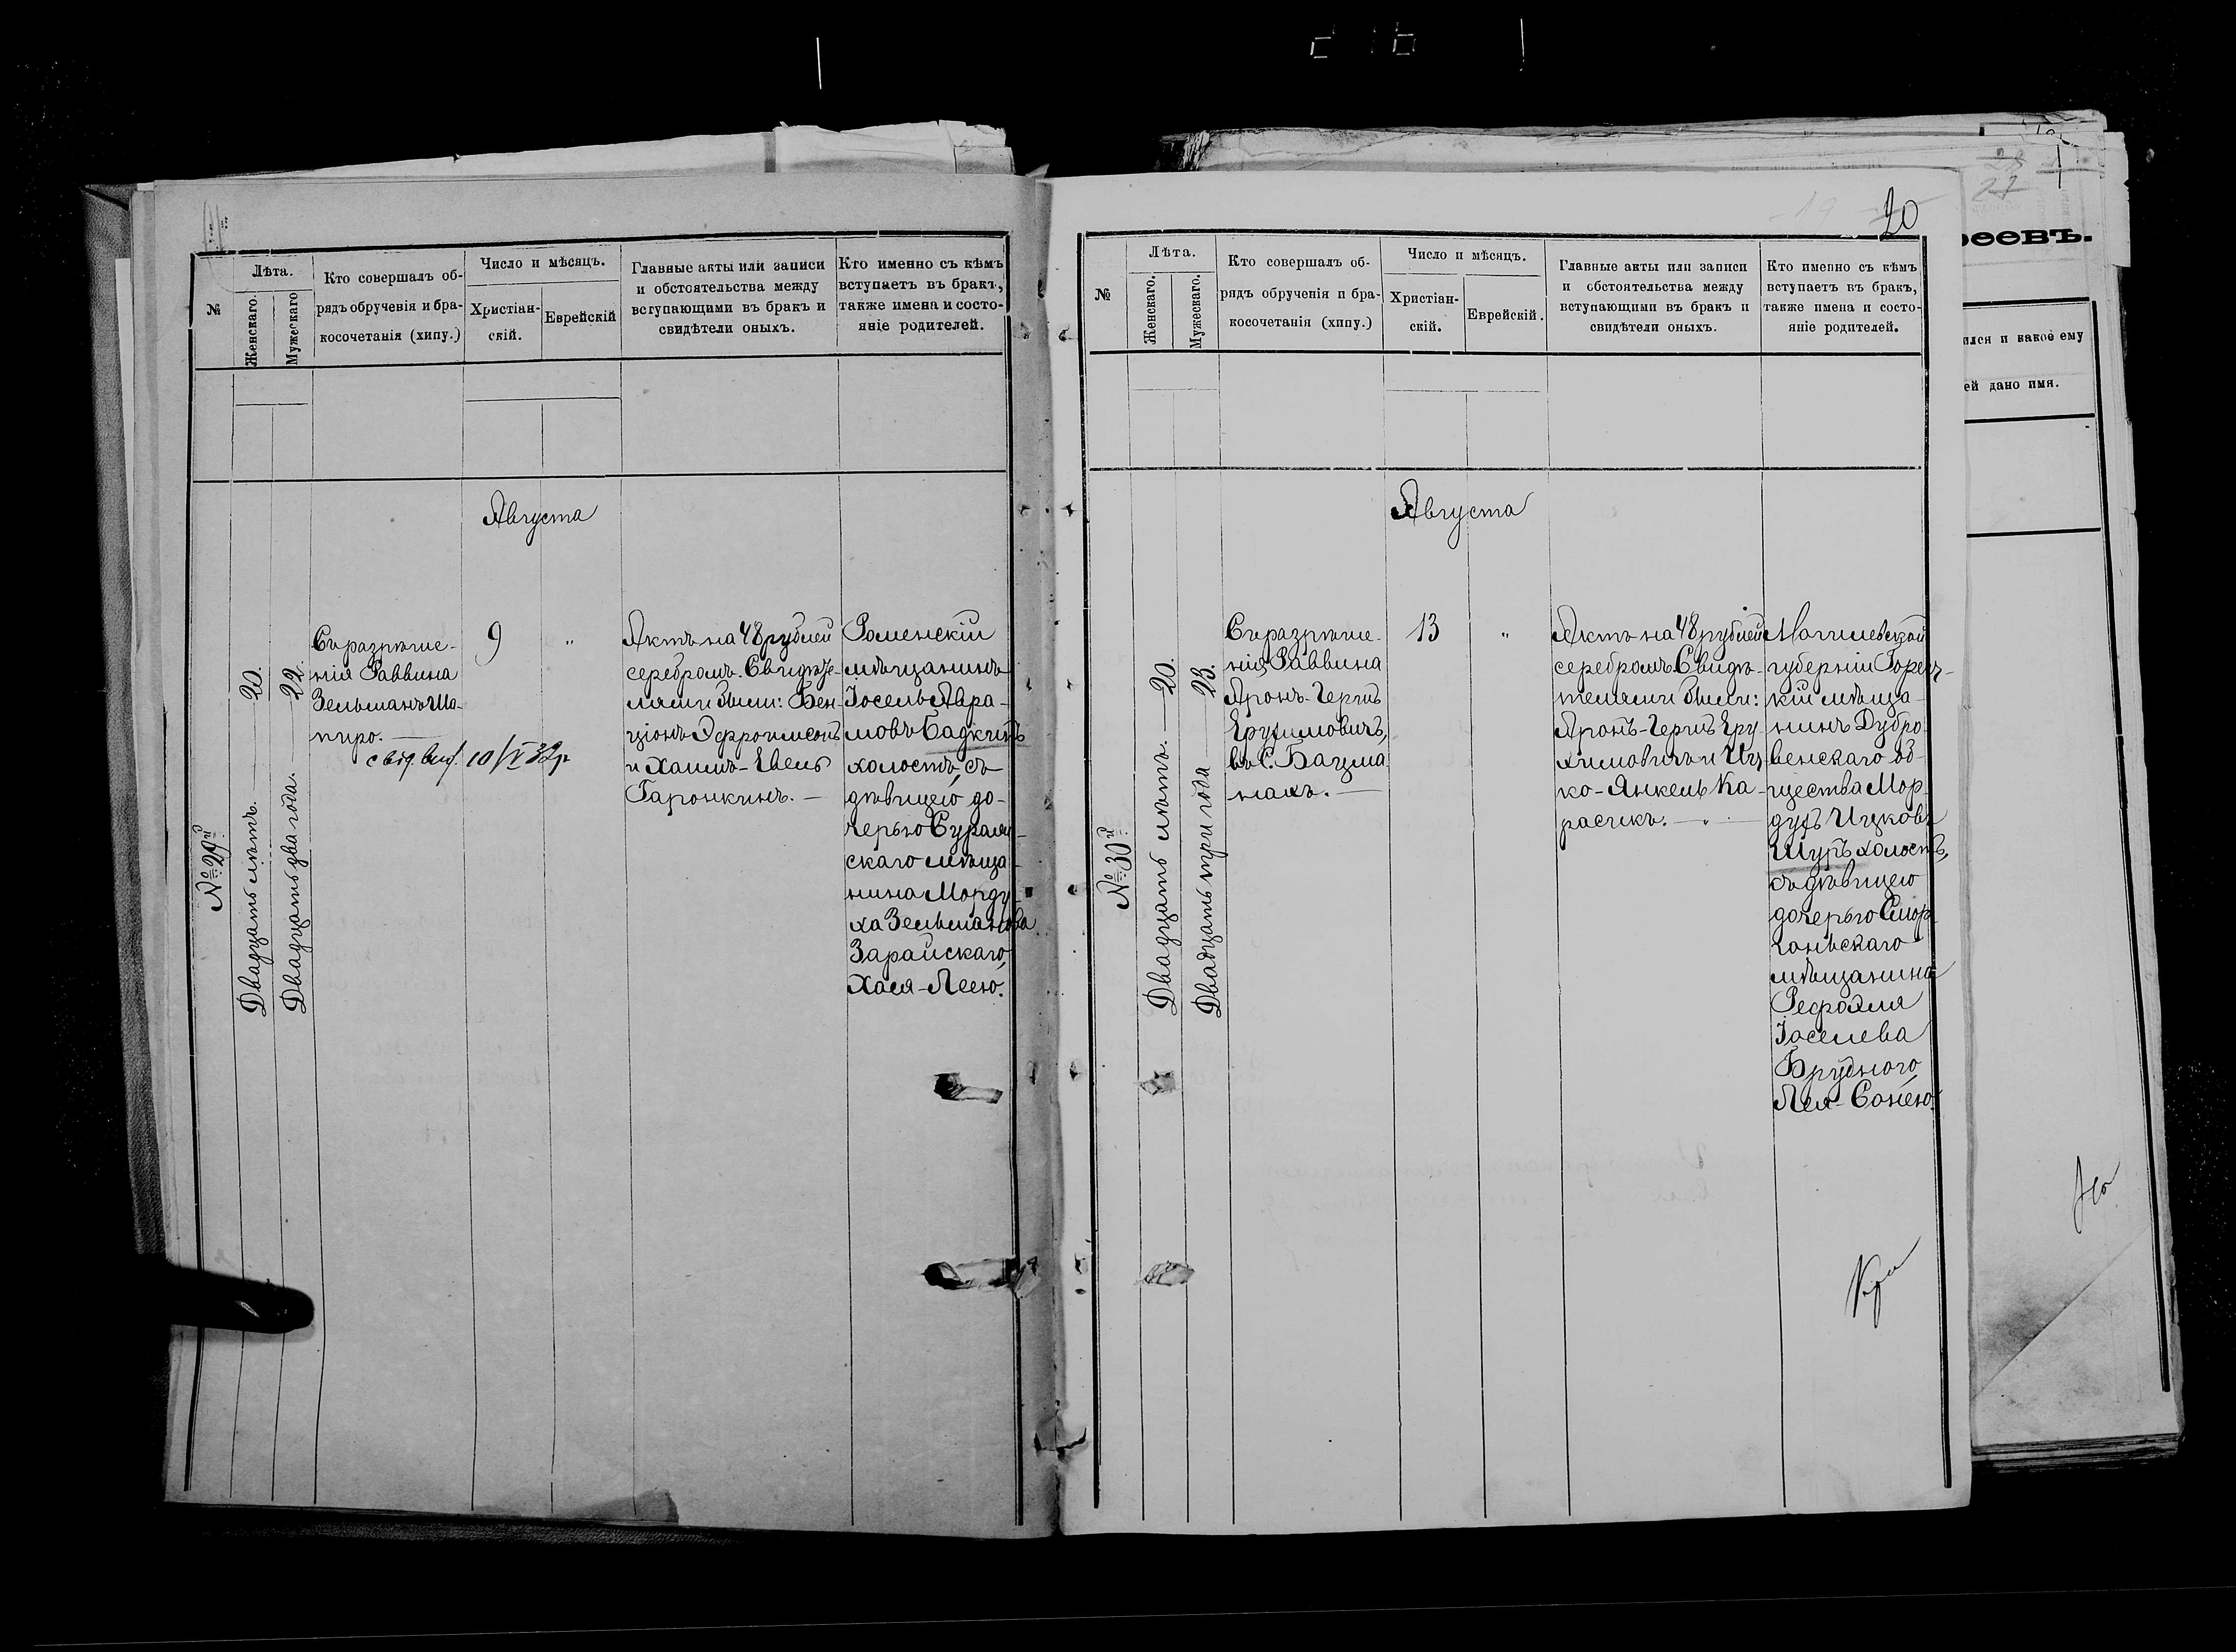 №
Лѣта.
Женскаго.
Мужескаго
Кто совершалъ об-
рядъ обрученія и бра-
косочетанія (хипу.)
Число и мѣсяцъ.
Христіан-
скій.
Еврейскій
Главные акты или записи
и обстоятельства между
вступающими въ бракъ и
свидѣтели оныхъ.
Кто именно съ кѣмъ
вступаетъ въ бракъ,
также имена и состо-
яніе родителей.
Августа
№ 29й
Двадцать лѣтъ. — 20.
Двадцать два года. — 22.
Съ разрѣше-
нія Раввина
Зельманъ Ша-
пиро. —
10/V 32г
9
"
Актъ на 48 рублей
серебромъ. Свидѣте-
лями были: Бен-
ціонъ Эфроимсонъ
и Хаимъ-Евель
Гаронкинъ. —
Роменскій
мѣщанинъ
Іосель Авра-
мовъ Бадкинъ
холостъ, съ
дѣвицею до-
черью Суражс-
скаго мѣща-
нина Морду-
ха Зельманова
Зарайскаго,
Хая-Леею.
20
№
Лѣта.
Женскаго.
Мужескаго.
Кто совершалъ об-
рядъ обрученія и бра-
косочетанія (хипу.)
Число и мѣсяцъ.
Христіан-
скій.
Еврейскій.
Главные акты или записи
и обстоятельства между
вступающими въ бракъ и
свидѣтели оныхъ.
Кто именно съ кѣмъ
вступаетъ въ бракъ,
также имена и состо-
яніе родителей.
Августа
№ 30й
Двадцать лѣтъ. — 20.
Двадцать три года — 23.
Съ разрѣше-
нія Раввина
Аронъ-Герцъ
Ерухимовичъ,
въ С. Бацма
нахъ. —
13
"
Актъ на 48 рублей
серебромъ Свидѣ-
телями были:
Аронъ-Герцъ Еру-
химовичъ и Иц-
ко-Янкель Ка-
расикъ. — " —
Могилевской
губерніи Горец-
кій мѣща-
нинъ Дубро-
венскаго об-
щества Мор-
духъ Ицковъ
Шуръ холостъ,
съ дѣвицею
дочерью Смор-
гоньскаго
мѣщанина
Рефаэля
Іоселева
Брудного,
Лея-Сонею.
27
ѳеовъ.
ился и какое ему
ей дано имя.